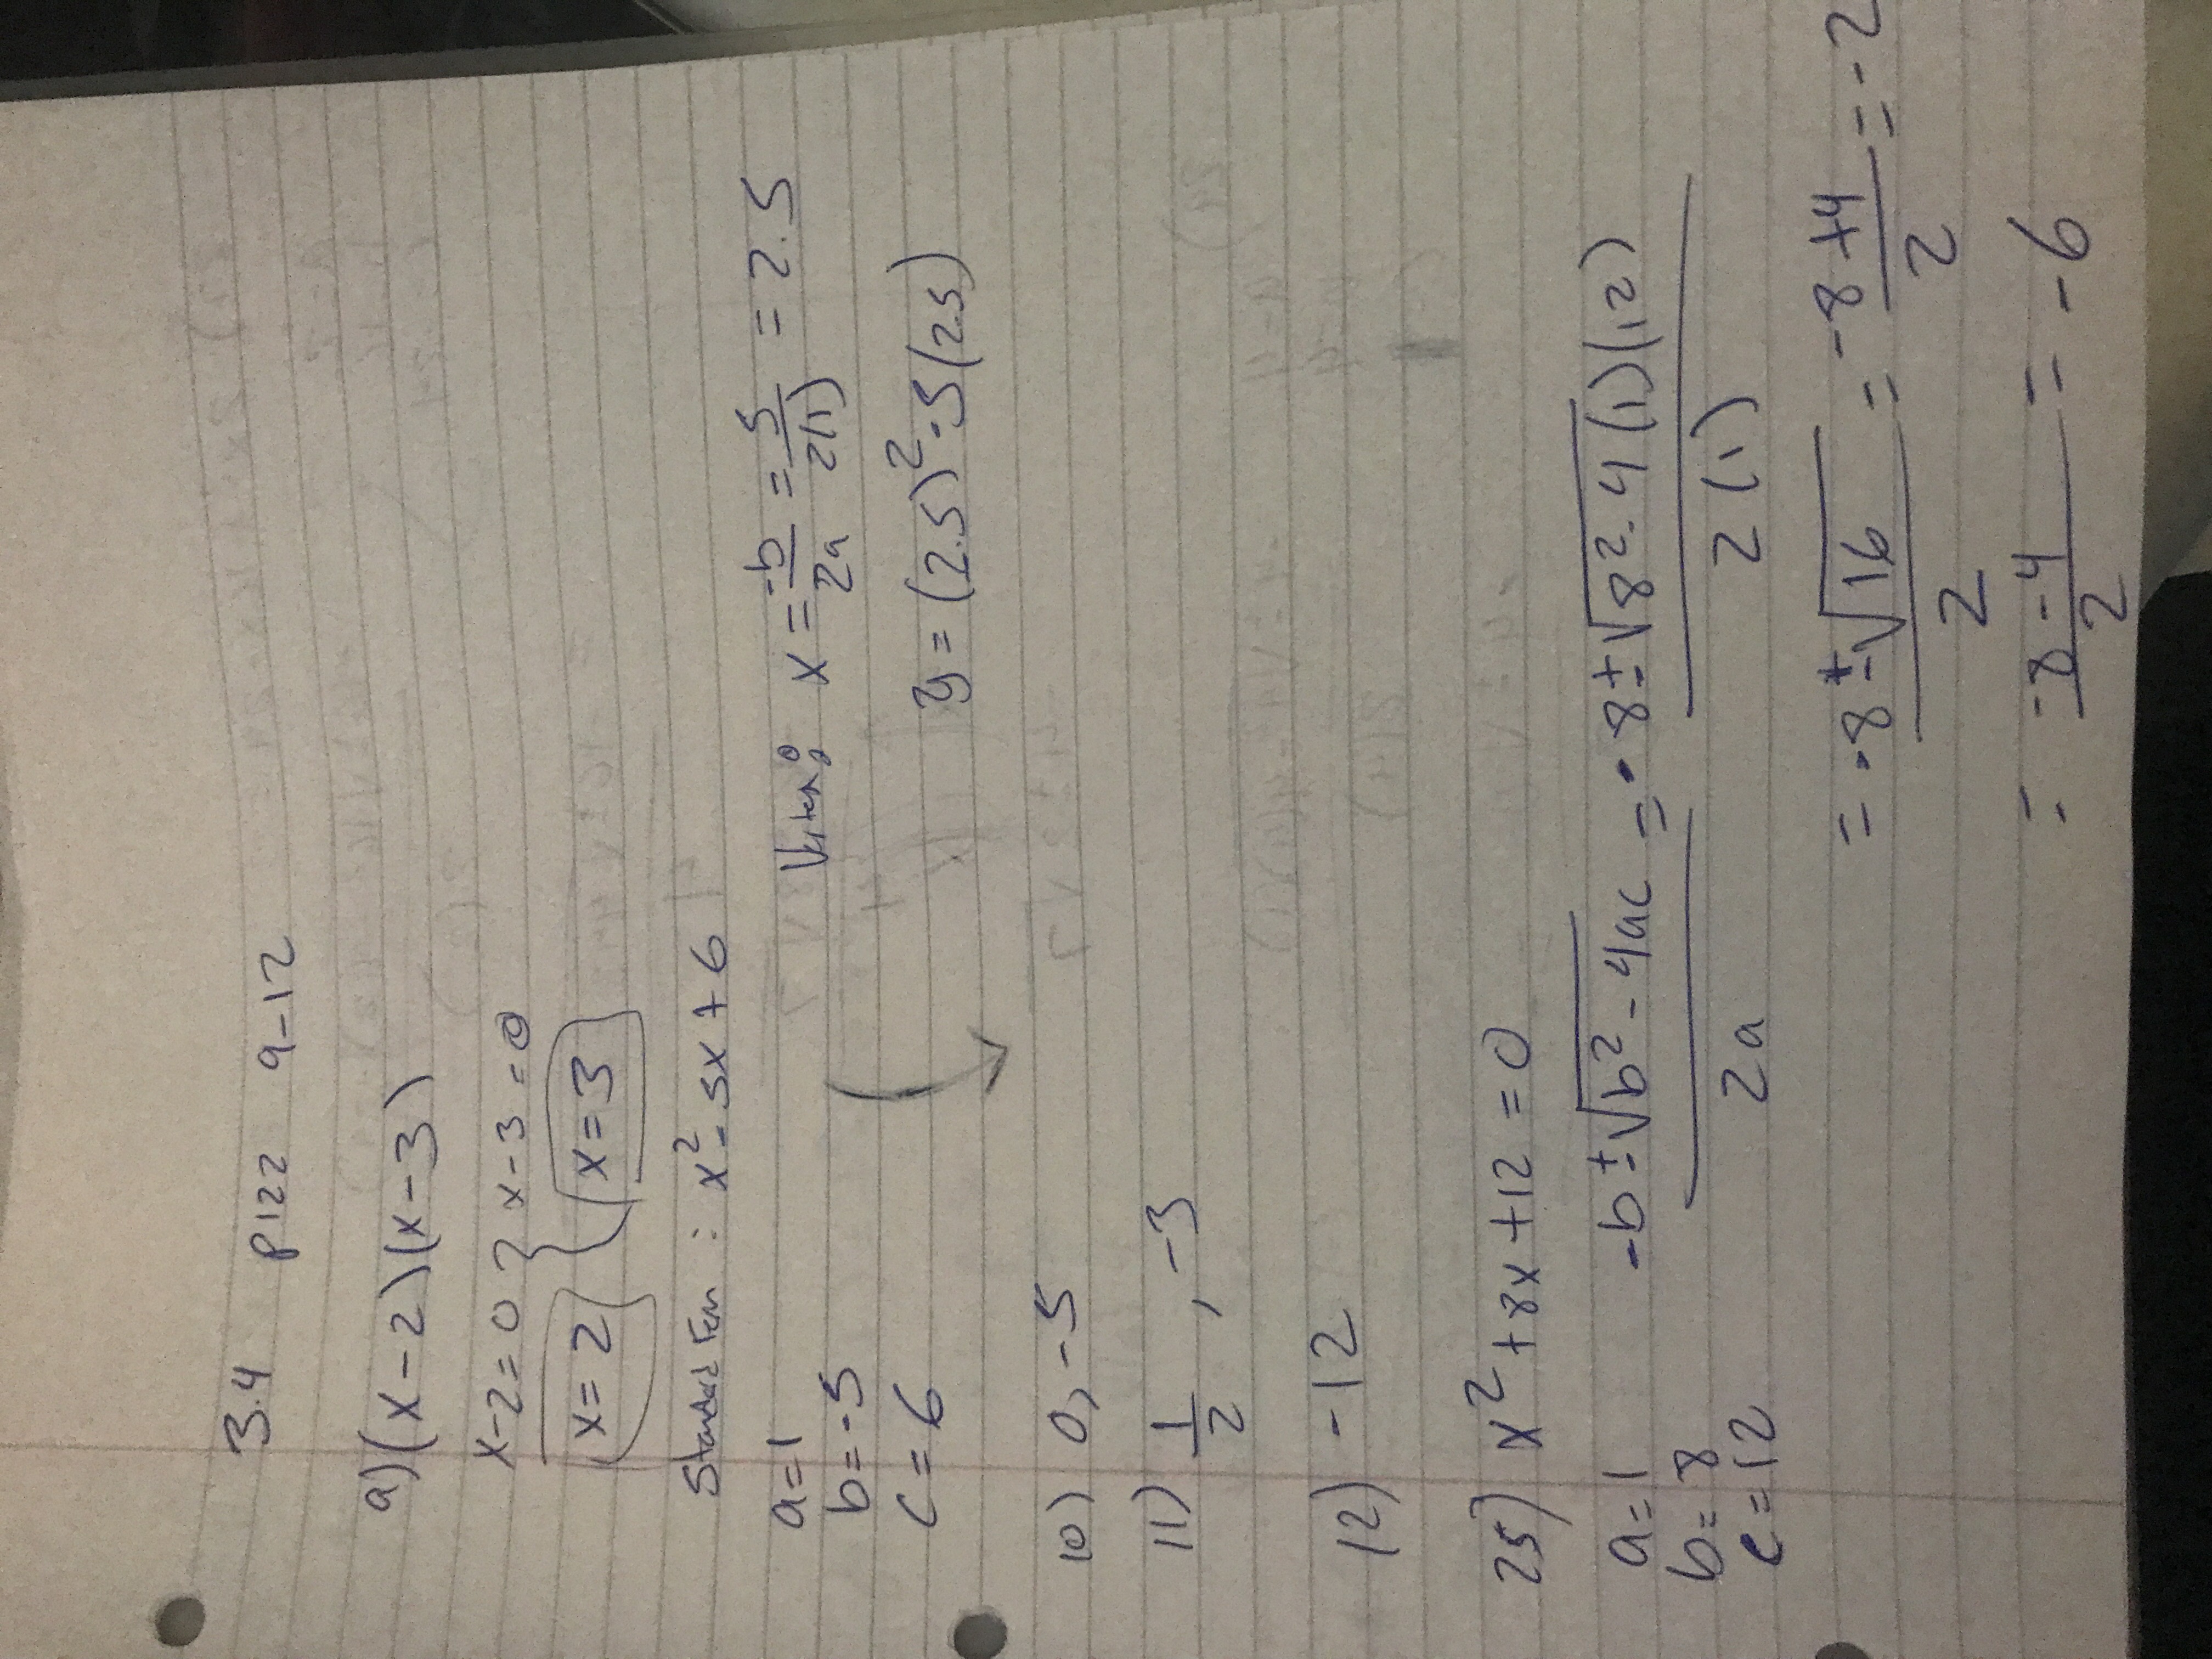 3.4 p122 9-12
9) (x-2)(x-3)
x-2=0 } x-3=0
x=2 x=3
Standard Form : x²-5x+6
a=1
b=-5
c=6
Vertex: x = -b/2a = 5/2(1) = 2.5
y = (2.5)²-5(2.5)
10) 0, -5
11) 1/2 , -3
12) -12
25) x²+8x+12=0
a=1
b=8
c=12
-b±√b²-4ac / 2a = -8±√8²-4(1)(12) / 2(1)
= -8±√16 / 2 = -8+4 / 2 = -2
= -8-4 / 2 = -6